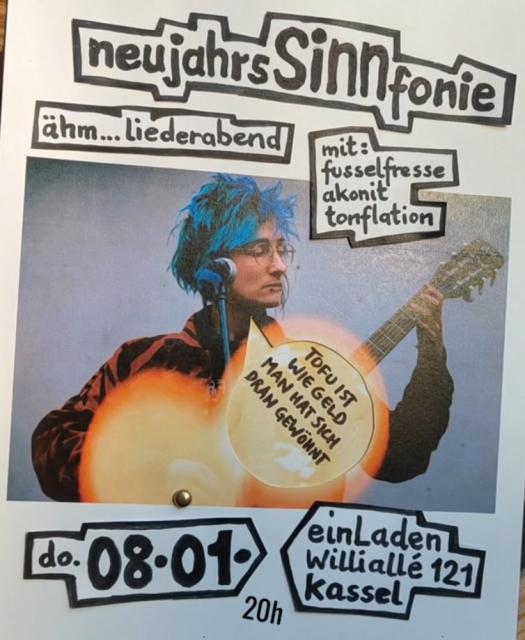 neujahrsSinnfonie
ähm... liederabend
mit:
fusselfresse
akonit
tonflation
TOFU IST
WIE GELD
MAN HAT SICH
DRAN GEWÖHNT
do. 08.01.
20h
einLaden
Williallé 121
Kassel